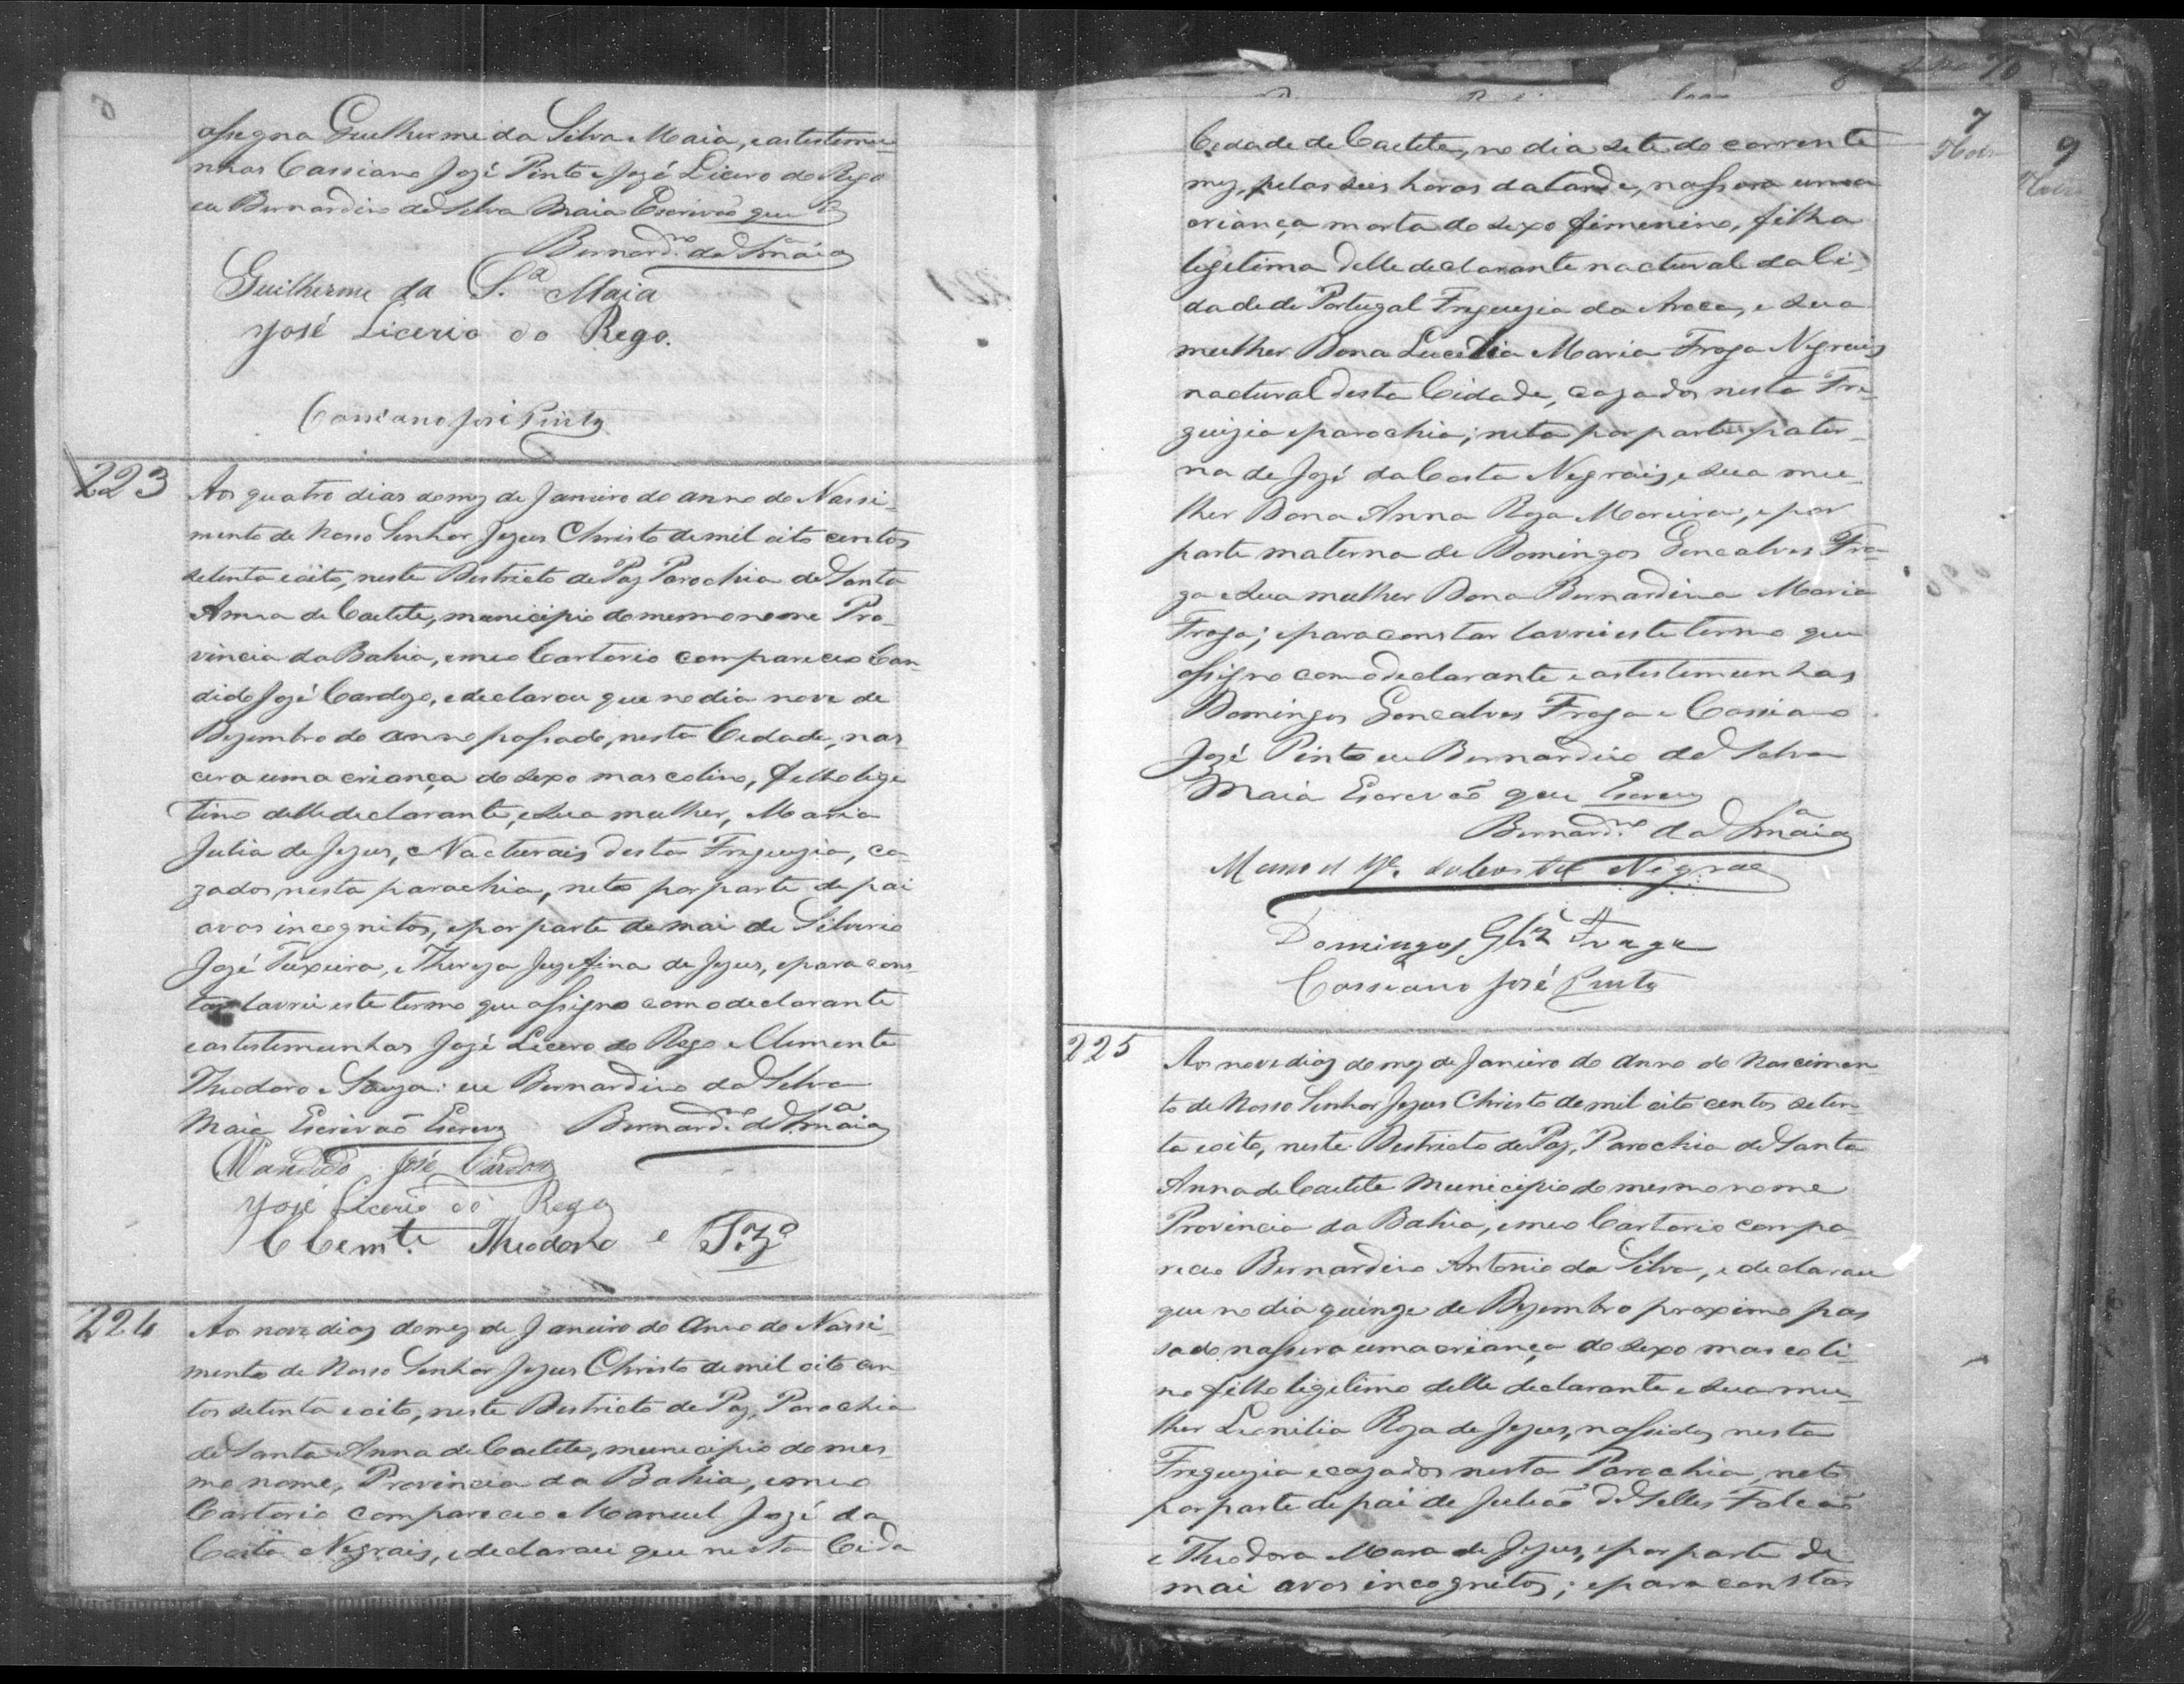 assegna Guilherme da Silva Maia, e as testemu-
nhas Cassiano Jozé Pinto e Jozé Licero do Rego
eu Bernardino da Silva Maia Escrivaõ que
Bernard.no da S.a Maia
Guilherme da S.a Maia
José Licerio do Rego.
Cassiano José Pinto
223
Aos quatro dias do mez de Janeiro do anno do Nassi-
mento de Nosso Senhor Jezus Christo de mil oito centos
setenta e oito, neste Destricto de Paz Parochia de Santa
Anna de Caetete, municipio do mesmo nome Pro-
vincia da Bahia, em meo Cartorio compareceo Can-
dido Jozé Cardozo, e declarou que no dia nove de
Dezembro do anno passado, nesta Cidade, nas-
cera uma criança do sexo mascolino, filho legi
timo delle declarante, e sua mulher, Maria
Julia de Jezus, Nacturais desta Freguezia, ca-
zados nesta parochia, neto por parte de pai
avos incognitos, e por parte de mai de Silverio
Jozé Teixeira, e Thereza Jozefina de Jezus, e para cons-
tar lavrei este termo que assigno com o declarante
e as testemunhas Jozé Licero do Rego e Clemente
Theodoro e Souza: eu Bernardino da Silva
Maia Escrivaõ Escrevy Bernard.no da S.a Maia
Candido José Cardozo
José Licerio do Rego
Clem.te Theodoro e Sz.a
224
Aos nove dias do mez de Janeiro do Anno do Nassi-
mento de Nosso Senhor Jezus Christo de mil oito cen-
tos setenta e oito, neste Destricto de Paz, Parochia
de Santa Anna de Caetete, municipio do mes-
mo nome, Provincia da Bahia, em meo
Cartorio compareceo Manuel Jozé da
Costa Negrais, e declarou que nesta Cida
7
9
Cedade de Caetete, no dia sete do corrente
mez, pelas seis horas da tarde, nassera uma
criança morta do sexo femenino, filha
legitima delle declarante nactural da Ci-
dade de Portugal Freguezia da Aroca, e sua
mulher Dona Lucidia Maria Fraga Negrais
nactural desta Cidade, cazados nesta Fre-
guizia e parochia; neta por parte pater-
na de Jozé da Costa Negrais, e sua mu-
lher Dona Anna Roza Moreira, e por
parte materna de Domingos Goncalves Fra-
ga e sua mulher Dona Bernardina Maria
Fraga; e para constar lavrei este termo que
assigno com o declarante e as testemunhas
Domingos Goncalves Fraga e Cassiano
Jozé Pinto eu Bernardino da Silva
Maia Escrevaõ que Escrevy
Bernard.no da S.a Maia
Manoel Jé. da Costa Negrae
Domingos Glz Fraga
Cassiano José Pinto
225
Aos nove dias do mez de Janeiro do Anno do Nascimen-
to de Nosso Senhor Jezus Christo de mil oito centos seten-
ta e oito, neste Destricto de Paz, Parochia de Santa
Anna de Caetete Municipio do mesmo nome
Provincia da Bahia, em meo Cartorio compa-
receo Bernardino Antonio da Silva, e declarou
que no dia quinze de Dezembro proximo pas
sado nassera uma criança do sexo mascoli-
no filho legitimo delle declarante e sua mu-
lher Leonilia Roza de Jezus, nassidos nesta
Freguezia e cazados nesta Parochia, neto
por parte de pai de Juliaõ de Telles Falcaõ
e Theodora Mara de Jezus, e por parte de
mai avos incognitos; e para constar